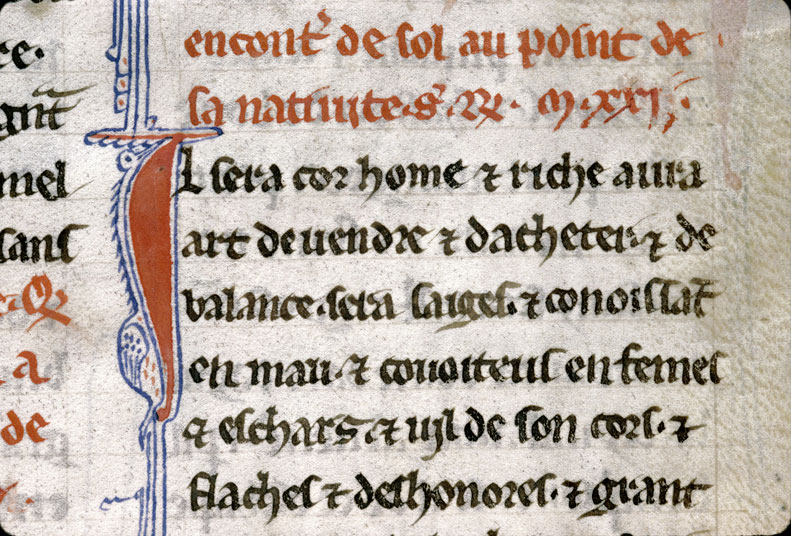 ce.
encontr̃ de sol au point de
gnt̃
sa natiuite.
mel
Il sera cor home ⁊ riche aura
sans
art de uendre ⁊ dacheter. ⁊ de
balance. sera saiges. ⁊ conoissãt
a
en mau. ⁊ couoiteus en femes
de
⁊ eschars ⁊ uil de son cors. ⁊
flaches ⁊ deshonores. ⁊ grant